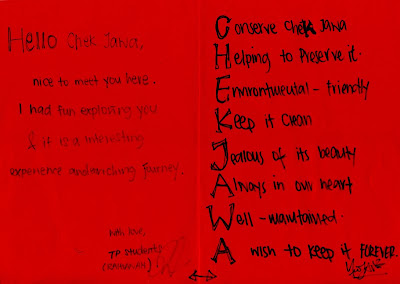 Hello Chek Jawa,
nice to meet you here.
I had fun exploring you
& it is a interesting
experience and meeting journey.
with love,
TP students
Conserve Chek Jawa
Helping to Preserve it.
Environtmental - friendly
Keep it Clean
Jealous of its beauty
Always in our heart
Well - maintained.
A wish to keep it FOREVER.